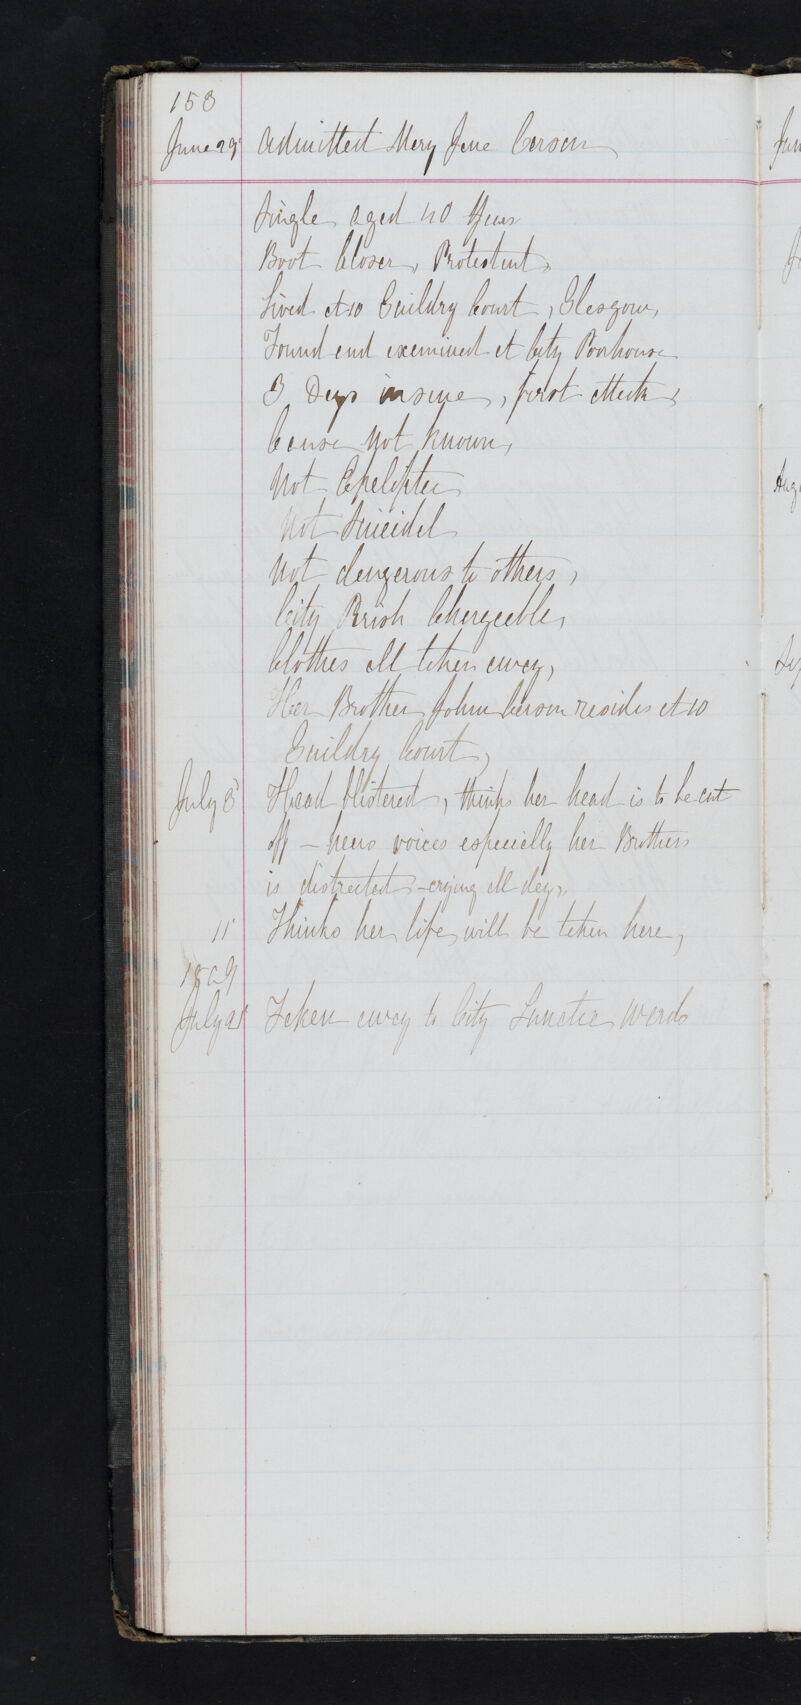 158
June 29 Admitted Mary Jane Carson
Single aged 40 Years
Boot Closer, Protestant,
Lived at 10 Guildry Court, Glasgow,
Found and examined at City Poorhouse
3 Days insane, first attack,
Cause not known,
Not Epeleptic
Not Suicidal
Not dangerous to others,
City Parish Chargeable,
Clothes all taken away,
Her Brother John Carson resides at 10
Guildry Court,
July 3 Head blistered, thinks her head is to be cut
off – hears voices especially her Brothers
is distracted – crying all day,
11 Thinks her life will be taken here,
July 21 Taken away to City Lunatic Wards
Jun
Aug